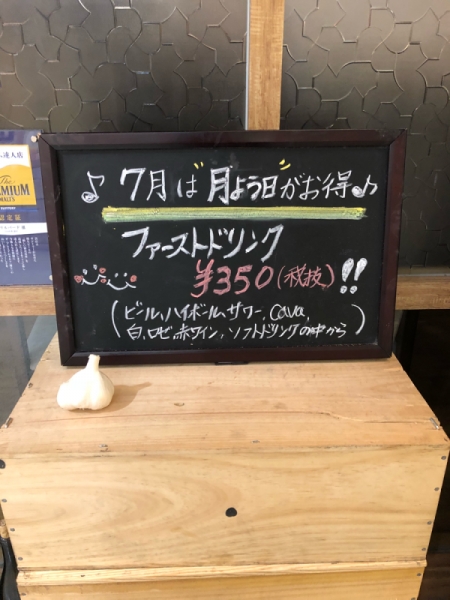 ♪ 7月は"月よう日"がお得♪
ファーストドリンク
¥350(税抜)!!
(ビール、ハイボール、サワー、Cava,
白、ロゼ、赤ワイン、ソフトドリンクの中から)
達人店
The
PREMIUM
MALT'S